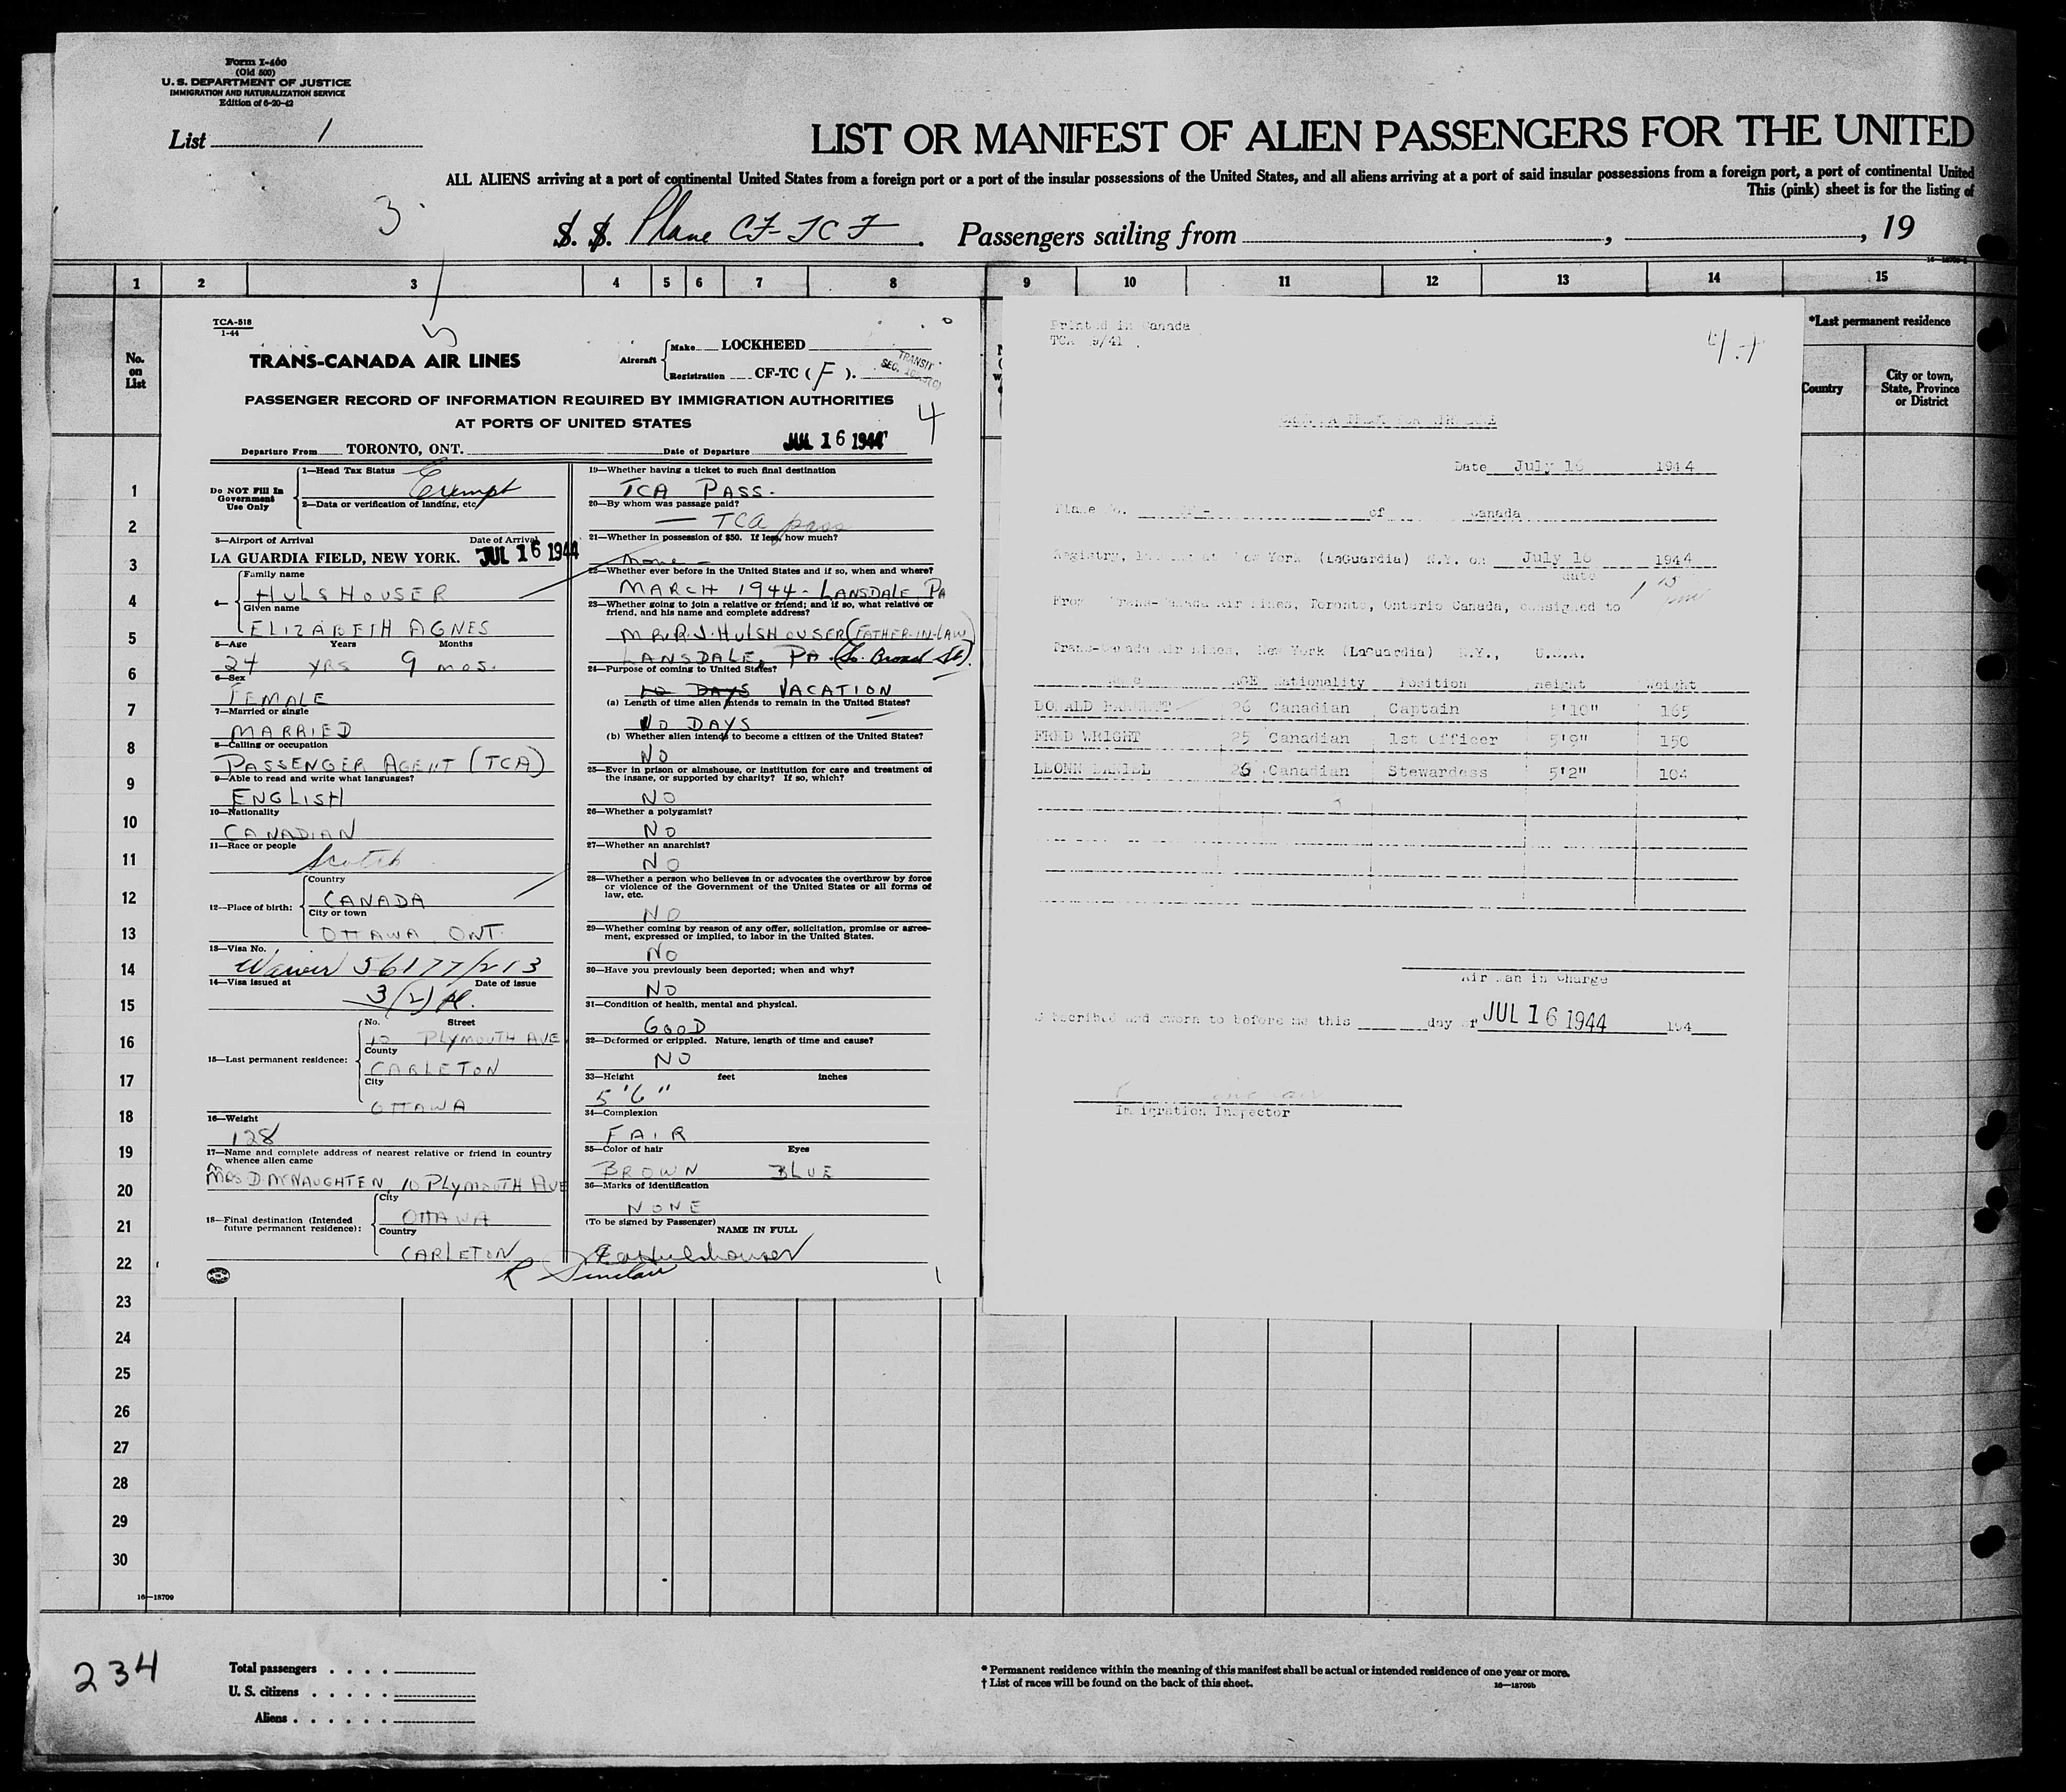 Form I-460
(Old 500)
U. S. DEPARTMENT OF JUSTICE
IMMIGRATION AND NATURALIZATION SERVICE
Edition of 6-20-42
List 1
LIST OR MANIFEST OF ALIEN PASSENGERS FOR THE UNITED
ALL ALIENS arriving at a port of continental United States from a foreign port or a port of the insular possessions of the United States, and all aliens arriving at a port of said insular possessions from a foreign port, a port of continental United
This (pink) sheet is for the listing of
3
S. S. Plane CF-TCF. Passengers sailing from , , 19
1 2 3 4 5 6 7 8 9 10 11 12 13 14 15
No.
on
List
TCA-518
1-44
TRANS-CANADA AIR LINES
Aircraft
Make LOCKHEED
Registration CF-TC ( F ).
TRANSIT
PASSENGER RECORD OF INFORMATION REQUIRED BY IMMIGRATION AUTHORITIES
AT PORTS OF UNITED STATES
4
Departure From TORONTO, ONT. Date of Departure JUL 16 1944
Do NOT Fill In
Government
Use Only
1—Head Tax Status
Exempt
2—Data or verification of landing, etc.
3—Airport of Arrival Date of Arrival
LA GUARDIA FIELD, NEW YORK. JUL 16 1944
4—
Family name
HULSHOUSER
Given name
ELIZABETH AGNES
5—Age Years Months
24 YRS 9 MOS.
6—Sex
FEMALE
7—Married or single
MARRIED
8—Calling or occupation
PASSENGER AGENT (TCA)
9—Able to read and write what languages?
ENGLISH
10—Nationality
CANADIAN
11—Race or people
Scotch
12—Place of birth:
Country
CANADA
City or town
OTTAWA, ONT.
13—Visa No.
Waiver 56177/213
14—Visa issued at Date of issue
3(2)
15—Last permanent residence:
No. Street
10 PLYMOUTH AVE
County
CARLETON
City
OTTAWA
16—Weight
128
17—Name and complete address of nearest relative or friend in country
whence alien came
MRS D. McNAUGHTEN, 10 PLYMOUTH AVE
18—Final destination (Intended
future permanent residence):
City
OTTAWA
Country
CARLETON
19—Whether having a ticket to such final destination
TCA PASS.
20—By whom was passage paid?
— TCA pass
21—Whether in possession of $50. If less, how much?
none —
22—Whether ever before in the United States and if so, when and where?
MARCH 1944 - LANSDALE, PA
23—Whether going to join a relative or friend; and if so, what relative or
friend, and his name and complete address?
MR. R. J. HULSHOUSER (FATHER-IN-LAW)
LANSDALE, PA (So. Broad St).
24—Purpose of coming to United States?
10 DAYS VACATION
(a) Length of time alien intends to remain in the United States?
10 DAYS
(b) Whether alien intends to become a citizen of the United States?
NO
25—Ever in prison or almshouse, or institution for care and treatment of
the insane, or supported by charity? If so, which?
NO
26—Whether a polygamist?
NO
27—Whether an anarchist?
NO
28—Whether a person who believes in or advocates the overthrow by force
or violence of the Government of the United States or all forms of
law, etc.
NO
29—Whether coming by reason of any offer, solicitation, promise or agree-
ment, expressed or implied, to labor in the United States.
NO
30—Have you previously been deported; when and why?
NO
31—Condition of health, mental and physical.
GOOD
32—Deformed or crippled. Nature, length of time and cause?
NO
33—Height feet inches
5'6"
34—Complexion
FAIR
35—Color of hair Eyes
BROWN BLUE
36—Marks of identification
NONE
(To be signed by Passenger) NAME IN FULL
Hulshouser
R Sinclair
Printed in Canada
TCA 9/41
Date July 16 1944
Plane No. CF- of Canada
Registry, at New York (LaGuardia) N.Y. on July 16 1944
date
From Trans-Canada Air Lines, Toronto, Ontario Canada, consigned to
Trans-Canada Air Lines, New York (LaGuardia) N.Y., U.S.A.
Name AGE Nationality Position Height Weight
DONALD 26 Canadian Captain 5'10" 165
FRED WRIGHT 25 Canadian 1st Officer 5'9" 150
LEONN DANIEL 26 Canadian Stewardess 5'2" 104
Air Man in Charge
Subscribed and sworn to before me this day of JUL 16 1944 194
Immigration Inspector
*Last permanent residence
Country
City or town,
State, Province
or District
1
2
3
4
5
6
7
8
9
10
11
12
13
14
15
16
17
18
19
20
21
22
23
24
25
26
27
28
29
30
16—18709
234
Total passengers . . . .
U. S. citizens . . . . .
Aliens . . . . . .
* Permanent residence within the meaning of this manifest shall be actual or intended residence of one year or more.
† List of races will be found on the back of this sheet.
16—18709b